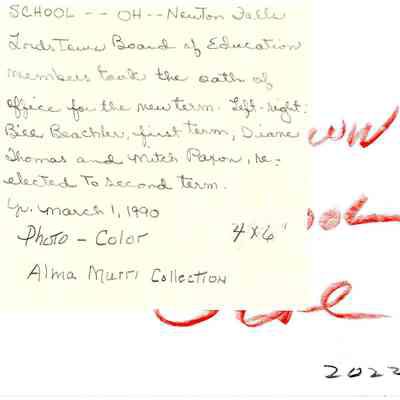 SCHOOL -- OH -- Newton Falls
Lordstown Board of Education
members took the oath of
office for the new term. Left-right:
Bill Beachler, first term, Diane
Thomas and Mitch Paxon, re-
elected to second term.
Yr. March 1, 1990
Photo - Color 4x6"
Alma Murri Collection
2022